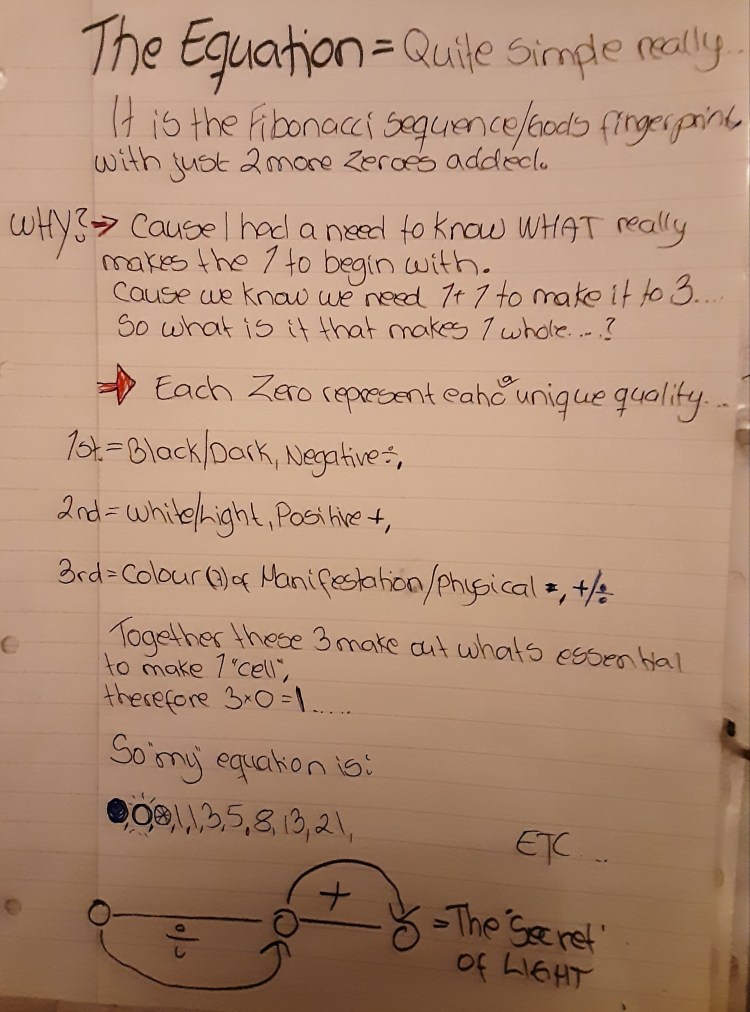 The Equation = Quite simple really...
It is the Fibonacci sequence/Gods fingerprint
with just 2 more zeroes added.
WHY? → Cause I had a need to know WHAT really
makes the 1 to begin with.
Cause we know we need 1+1 to make it to 3....
So what is it that makes 1 whole....?
→ Each Zero represent eahc a unique quality...
1st = Black/Dark, Negative ÷,
2nd = White/Light, Positive +,
3rd = Colour of Manifestation/Physical =, +/÷
Together these 3 make out whats essential
to make 1 "cell",
therefore 3×0=1.....
So "my" equation is:
0,0,0,1,1,3,5,8,13,21,
ETC...
+
÷
= The 'Secret'
Of LIGHT